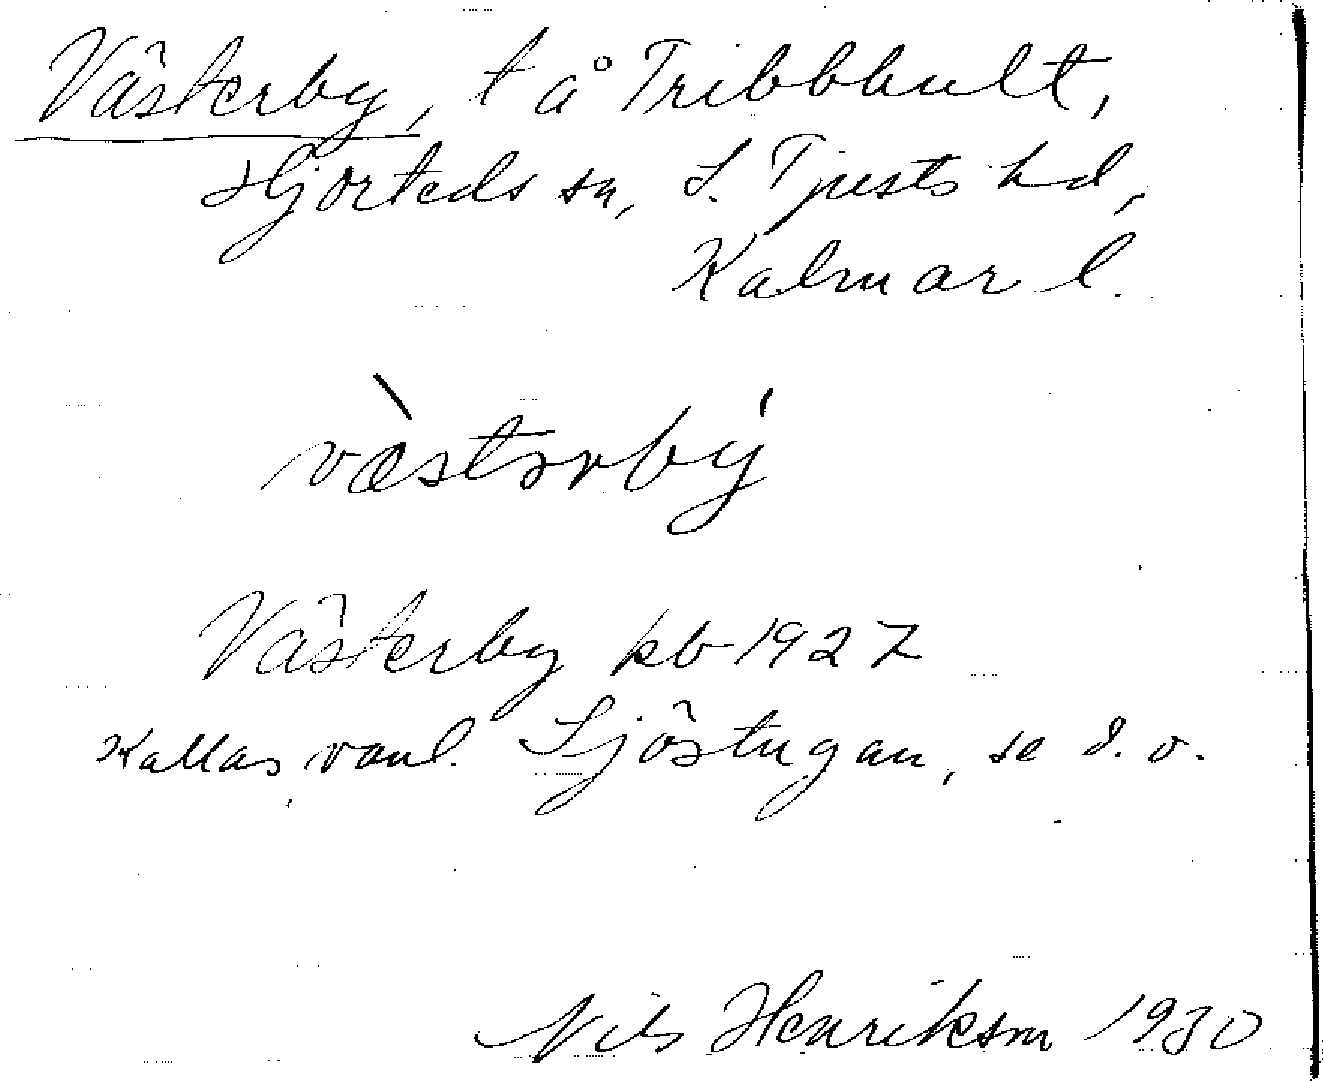 Västerby, t å Tribbhult,
Hjorteds sn, S. Tjusts hd,
Kalmar l.
væ̀stərbý
Västerby kb 1927
Kallas vanl. Sjöstugan, se d. o.
Nils Henrikson 1930